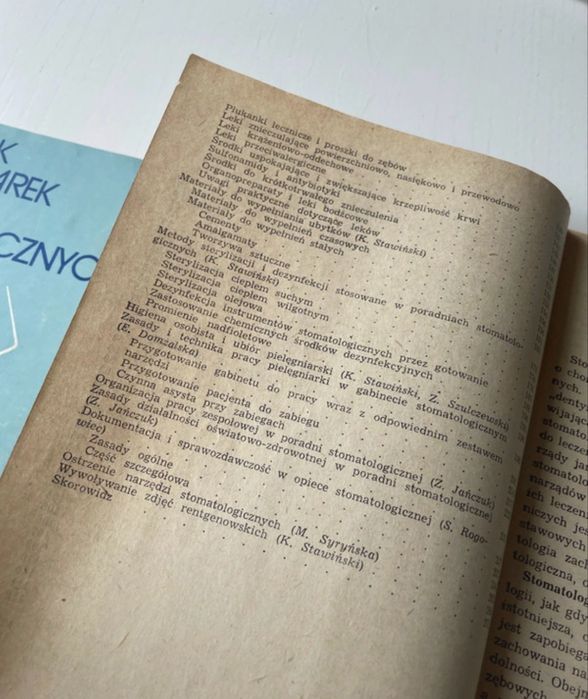 K
AREK
CZNYC
Płukanki lecznicze i proszki do zębów
Leki znieczulające powierzchniowo, nasiękowo i przewodowo
Leki krążeniowo-oddechowe
Leki przeciwalergiczne
Środki uspokajające i zwiększające krzepliwość krwi
Sulfonamidy i antybiotyki
Środki do krótkotrwałego znieczulenia
Organopreparaty i leki bodźcowe
Uwagi praktyczne dotyczące leków
Materiały do wypełniania ubytków (K. Stawiński)
Materiały do wypełnień czasowych
Materiały do wypełnień stałych
Cementy
Amalgamaty
Tworzywa sztuczne
Metody sterylizacji i dezynfekcji stosowane w poradniach stomatolo-
gicznych (K. Stawiński)
Sterylizacja ciepłem suchym
Sterylizacja ciepłem wilgotnym
Sterylizacja olejowa
Dezynfekcja instrumentów stomatologicznych przez gotowanie
Zastosowanie chemicznych środków dezynfekcyjnych
Promienie nadfioletowe
Higiena osobista i ubiór pielęgniarski (K. Stawiński, Z. Szulczewski)
Zasady i technika pracy pielęgniarki w gabinecie stomatologicznym
(E. Domżalska)
Przygotowanie gabinetu do pracy wraz z odpowiednim zestawem
narzędzi
Przygotowanie pacjenta do zabiegu
Czynna asysta przy zabiegach
Organizacja pracy zespołowej w poradni stomatologicznej (Z. Jańczuk)
Zasady działalności oświatowo-zdrowotnej w poradni stomatologicznej
(Z. Jańczuk)
Dokumentacja i sprawozdawczość w opiece stomatologicznej (S. Rogo-
wiec)
Zasady ogólne
Część szczegółowa
Ostrzenie narzędzi stomatologicznych (M. Syryńska)
Wywoływanie zdjęć rentgenowskich (K. Stawiński)
Skorowidz
Sto
o cho
nych.
„denty
wijając
stomat
do lecze
rządy ja
stomatolo
narządów
ich leczen
niczych jes
stawowych
tologia zach
tologiczna, o
Stomatolog
logii, jak gdy
istotniejsza, o
jest zapobiega
zachowania na
dolności. Obej
zębowych